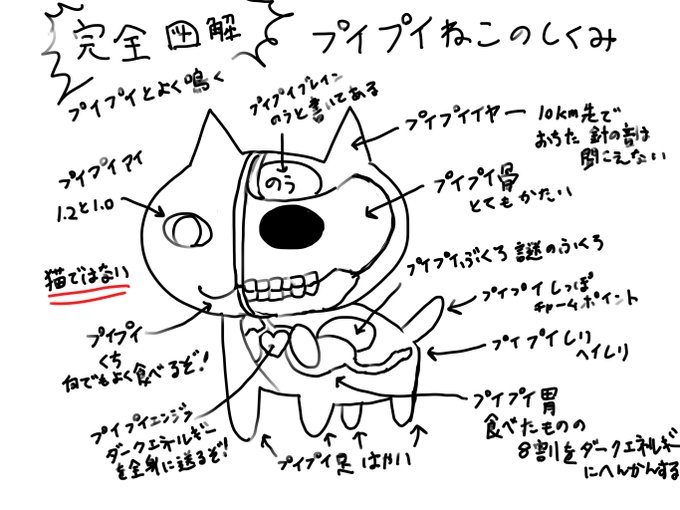 完全図解
プイプイねこのしくみ
プイプイとよく鳴く
プイプイブレイン
のうと書いてある
のう
プイプイイヤー
10km先で
おちた針の音は
聞こえない
プイプイアイ
1.2と1.0
プイプイ骨
とてもかたい
猫ではない
プイプイぶくろ 謎のふくろ
プイプイしっぽ
チャームポイント
プイプイ
くち
何でもよく食べるぞ!
プイプイしり
ヘイしり
プイプイエンジン
ダークエネルギー
を全身に送るぞ!
プイプイ胃
食べたものの
8割をダークエネルギー
にへんかんする
プイプイ足 はやい